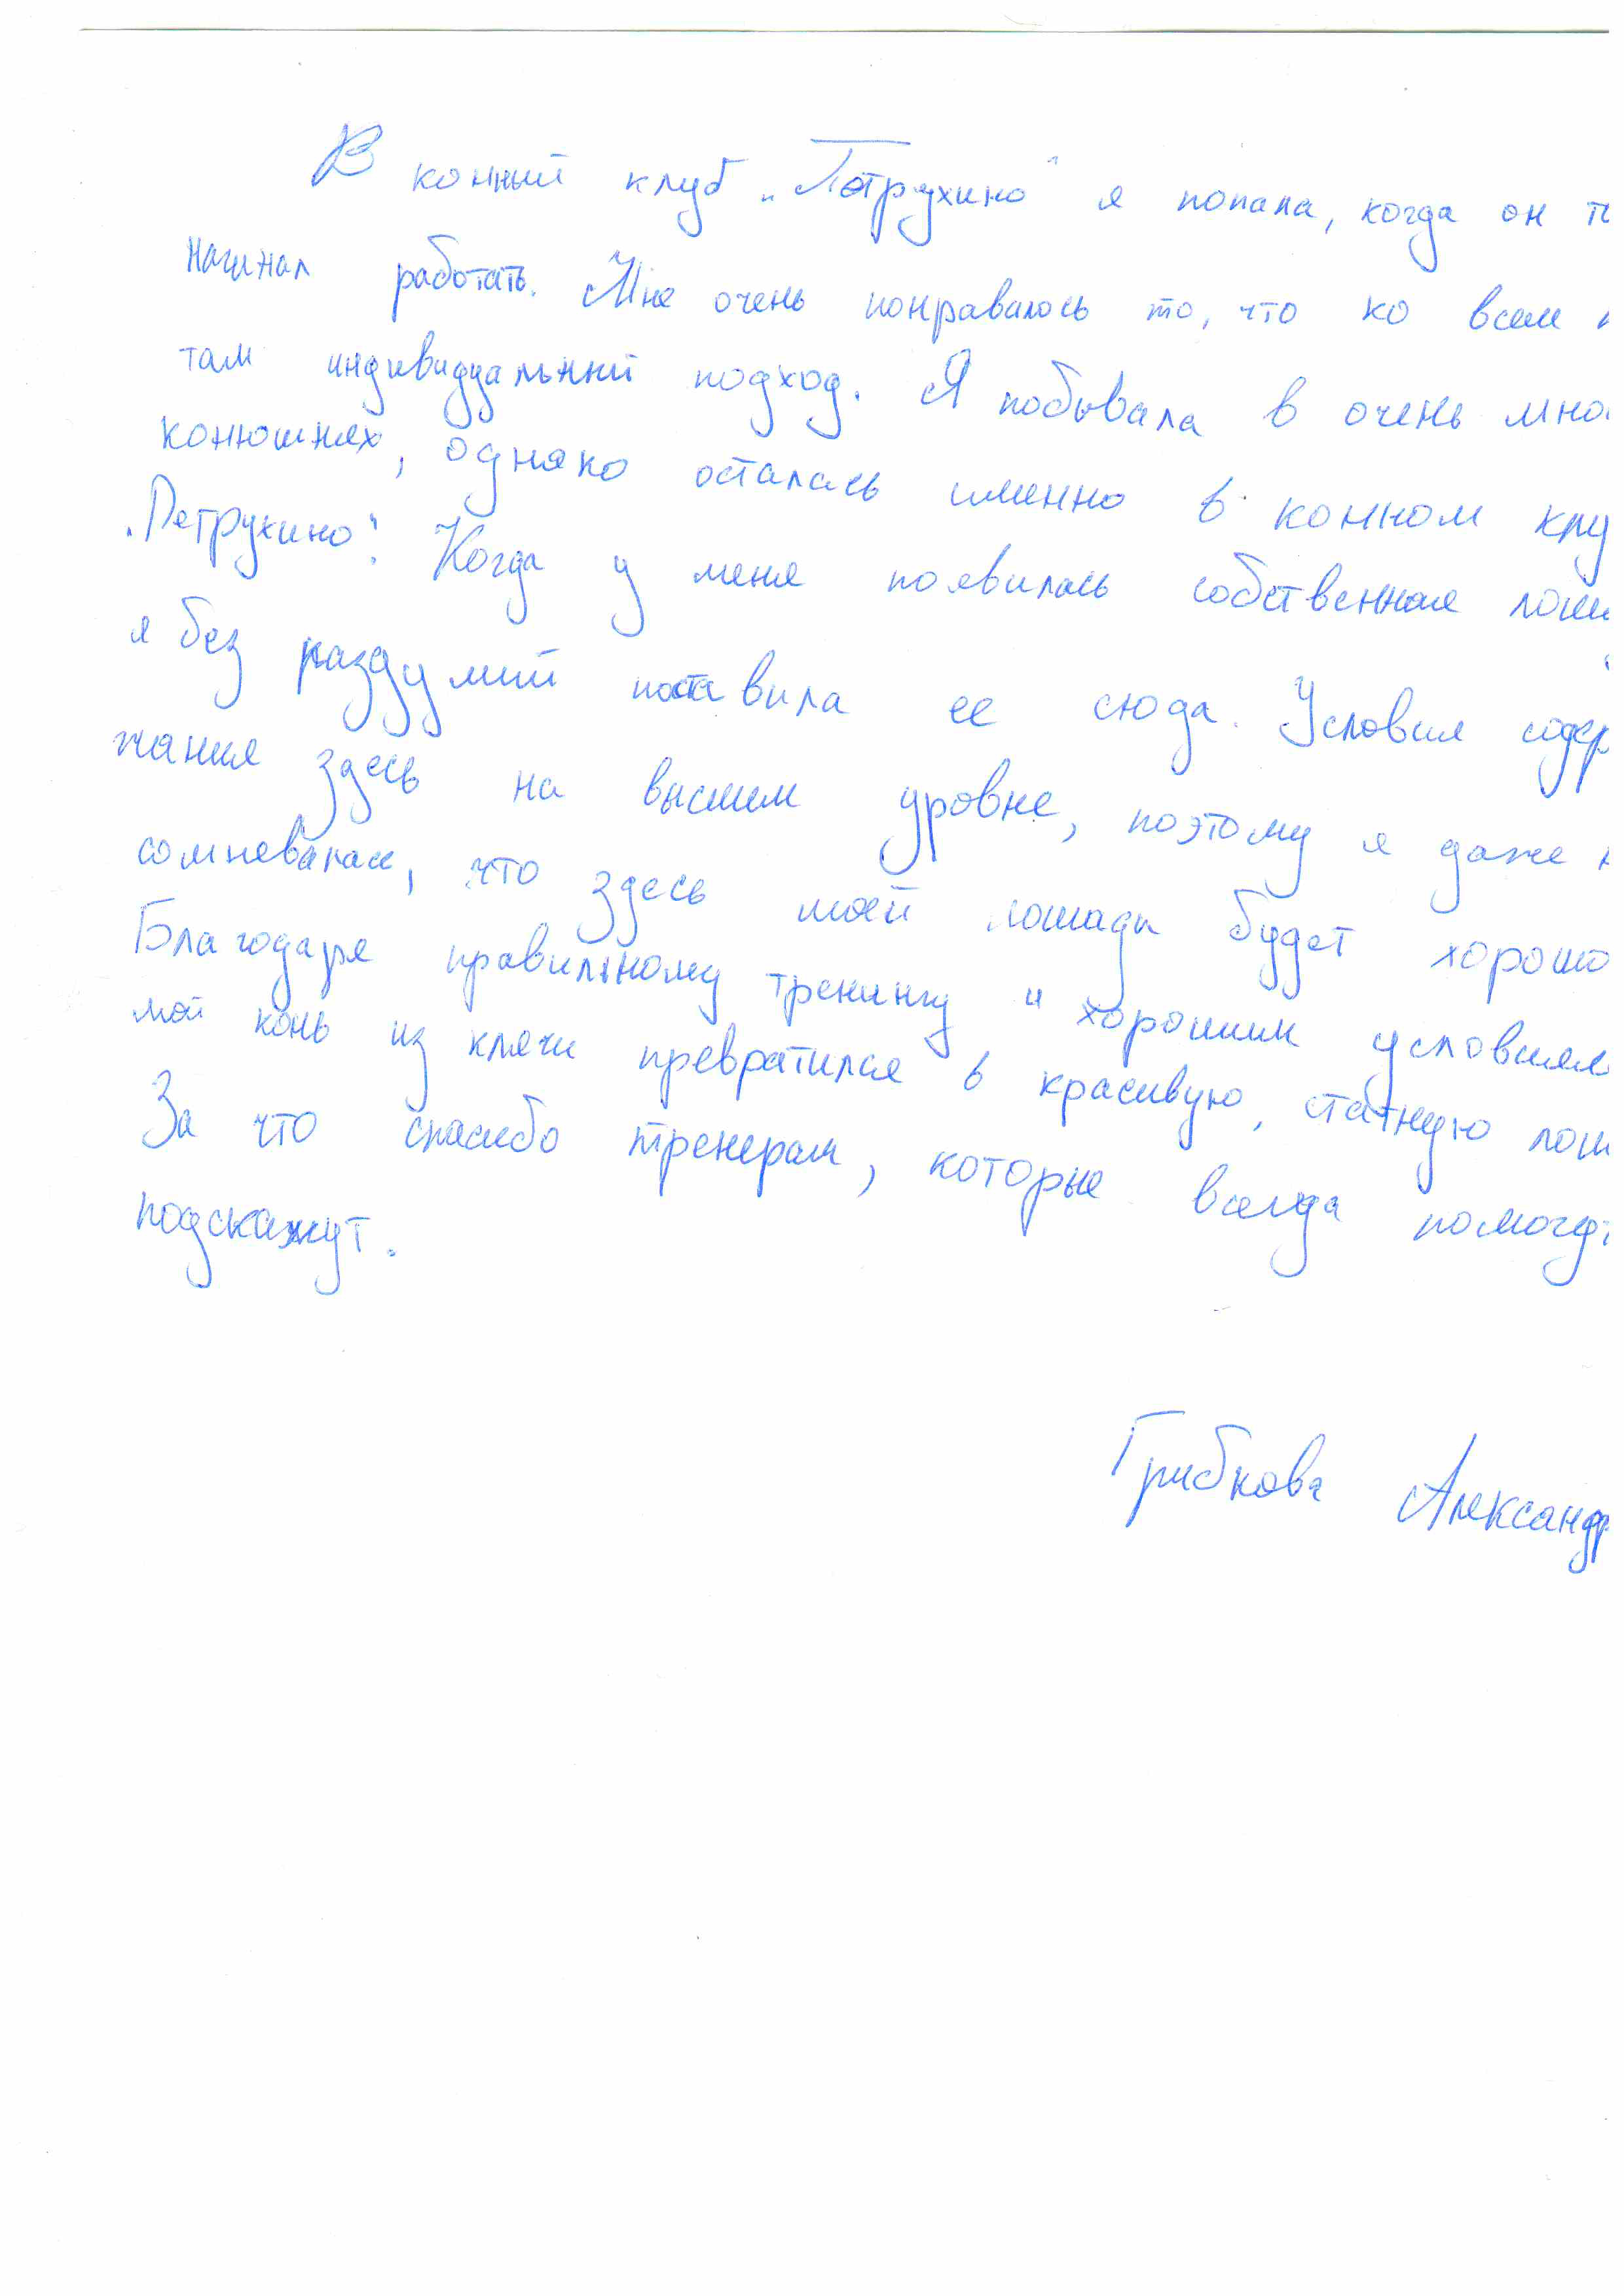 В конный клуб „Петрухино“ я попала, когда он т
начинал работать. Мне очень понравилось то, что ко всем
там индивидуальный подход. Я побывала в очень мно
конюшнях, однако осталась именно в конном клу
„Петрухино“. Когда у меня появилась собственная лош
я без раздумий поставила ее сюда. Условия содер
жания здесь на высшем уровне, поэтому я даже н
сомневалась, что здесь моей лошади будет хорошо
Благодаря правильному тренингу и хорошим условиям
мой конь из клячи превратился в красивую, статную лош
За что спасибо тренерам, которые всегда помогут
подскажут.
Грибкова Александр